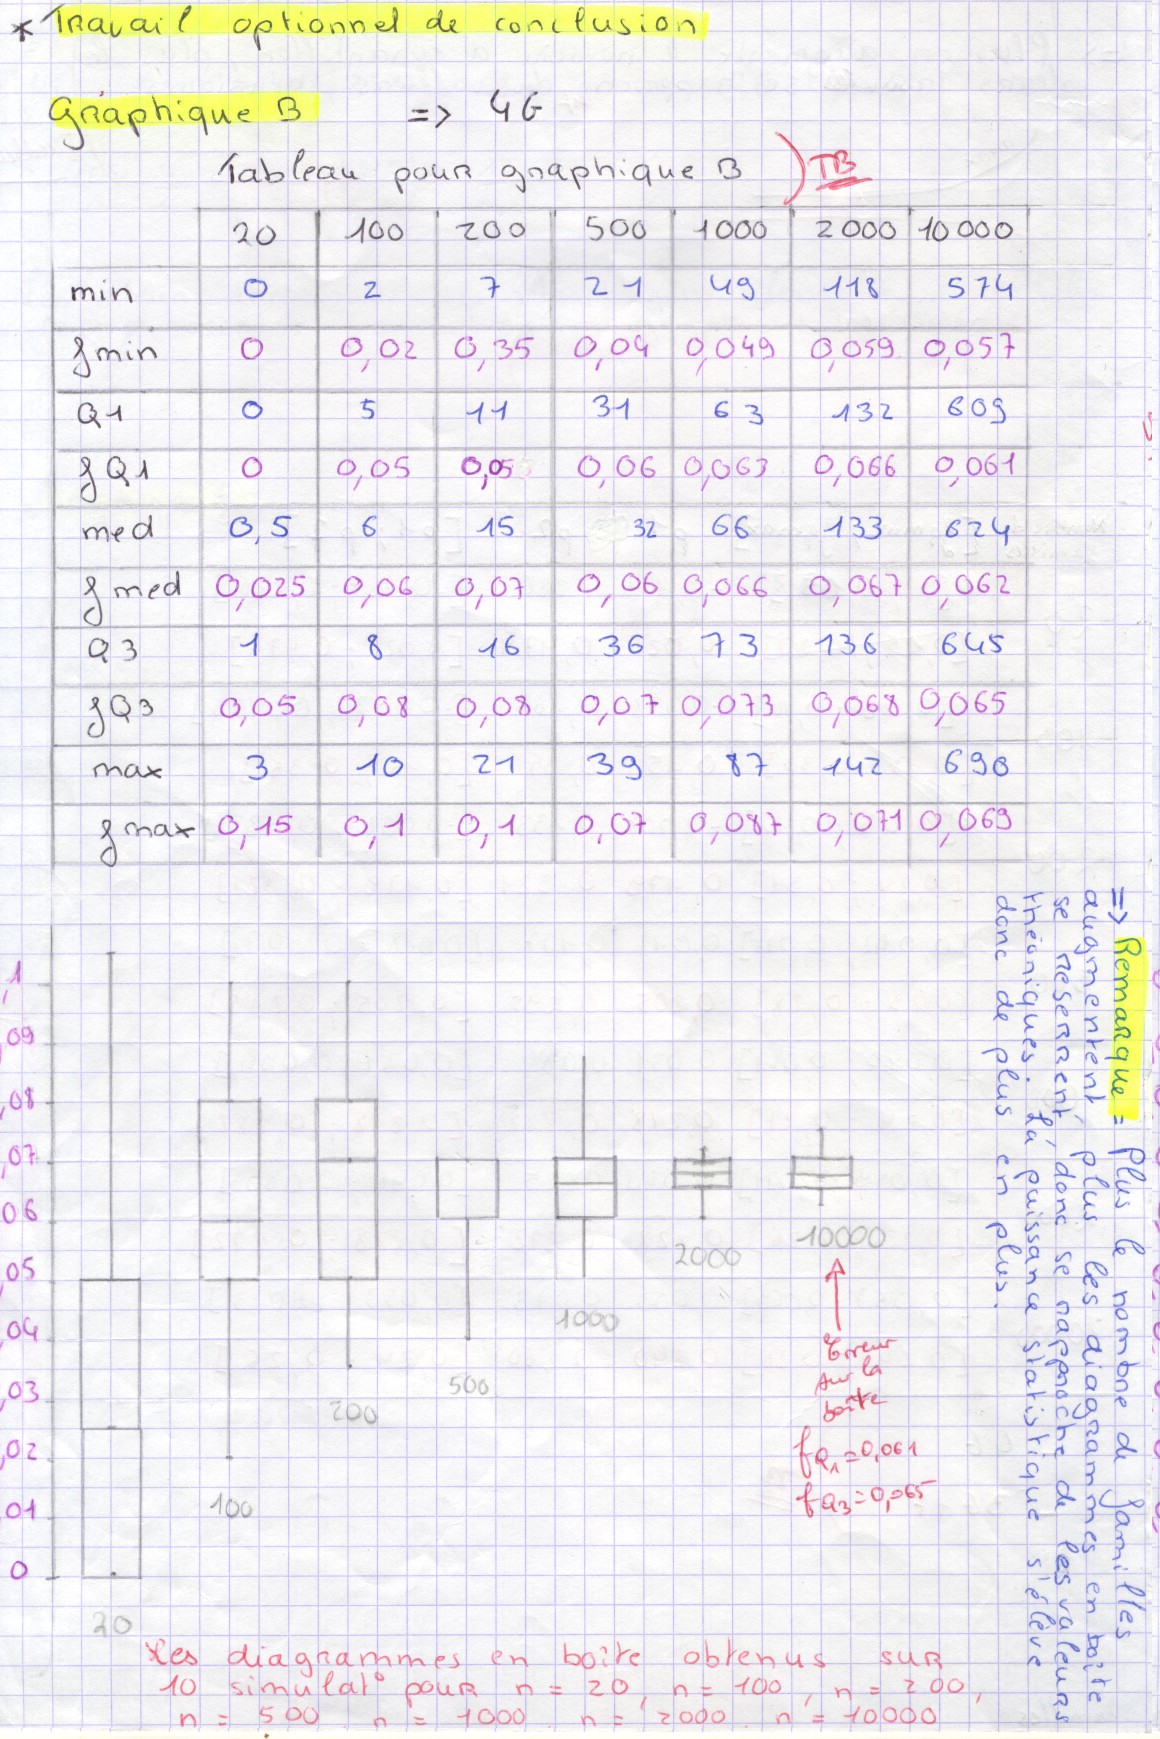 * Travail optionnel de conclusion
Graphique B => 4G
Tableau pour graphique B
TB
20 100 200 500 1000 2000 10 000
min 0 2 7 21 49 118 574
fmin 0 0,02 0,35 0,04 0,049 0,059 0,057
Q1 0 5 11 31 63 132 609
fQ1 0 0,05 0,05 0,06 0,063 0,066 0,061
med 0,5 6 15 32 66 133 624
fmed 0,025 0,06 0,07 0,06 0,066 0,067 0,062
Q3 1 8 16 36 73 136 645
fQ3 0,05 0,08 0,08 0,07 0,073 0,068 0,065
max 3 10 21 39 87 142 690
fmax 0,15 0,1 0,1 0,07 0,087 0,071 0,069
=> Remarque = Plus le nombre de familles
augmentent, plus les diagrammes en boîte
se reserrent, donc se rapproche de les valeurs
théoriques. La puissance statistique s'élève
donc de plus en plus.
,1
,09
,08
,07
06
,05
,04
,03
,02
,01
0
20
100
200
500
1000
2000
10000
Erreur
sur la
boîte
fQ1=0,061
fQ3=0,065
Les diagrammes en boîte obtenus sur
10 simulat° pour n = 20, n = 100, n = 200,
n = 500 n = 1000 n = 2000 n = 10000